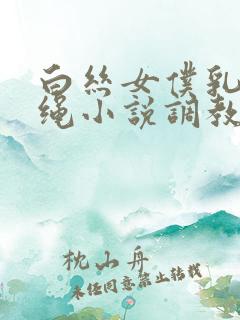 白丝女僕乳
绳小说調教
枕山舟
未经同意禁止转载